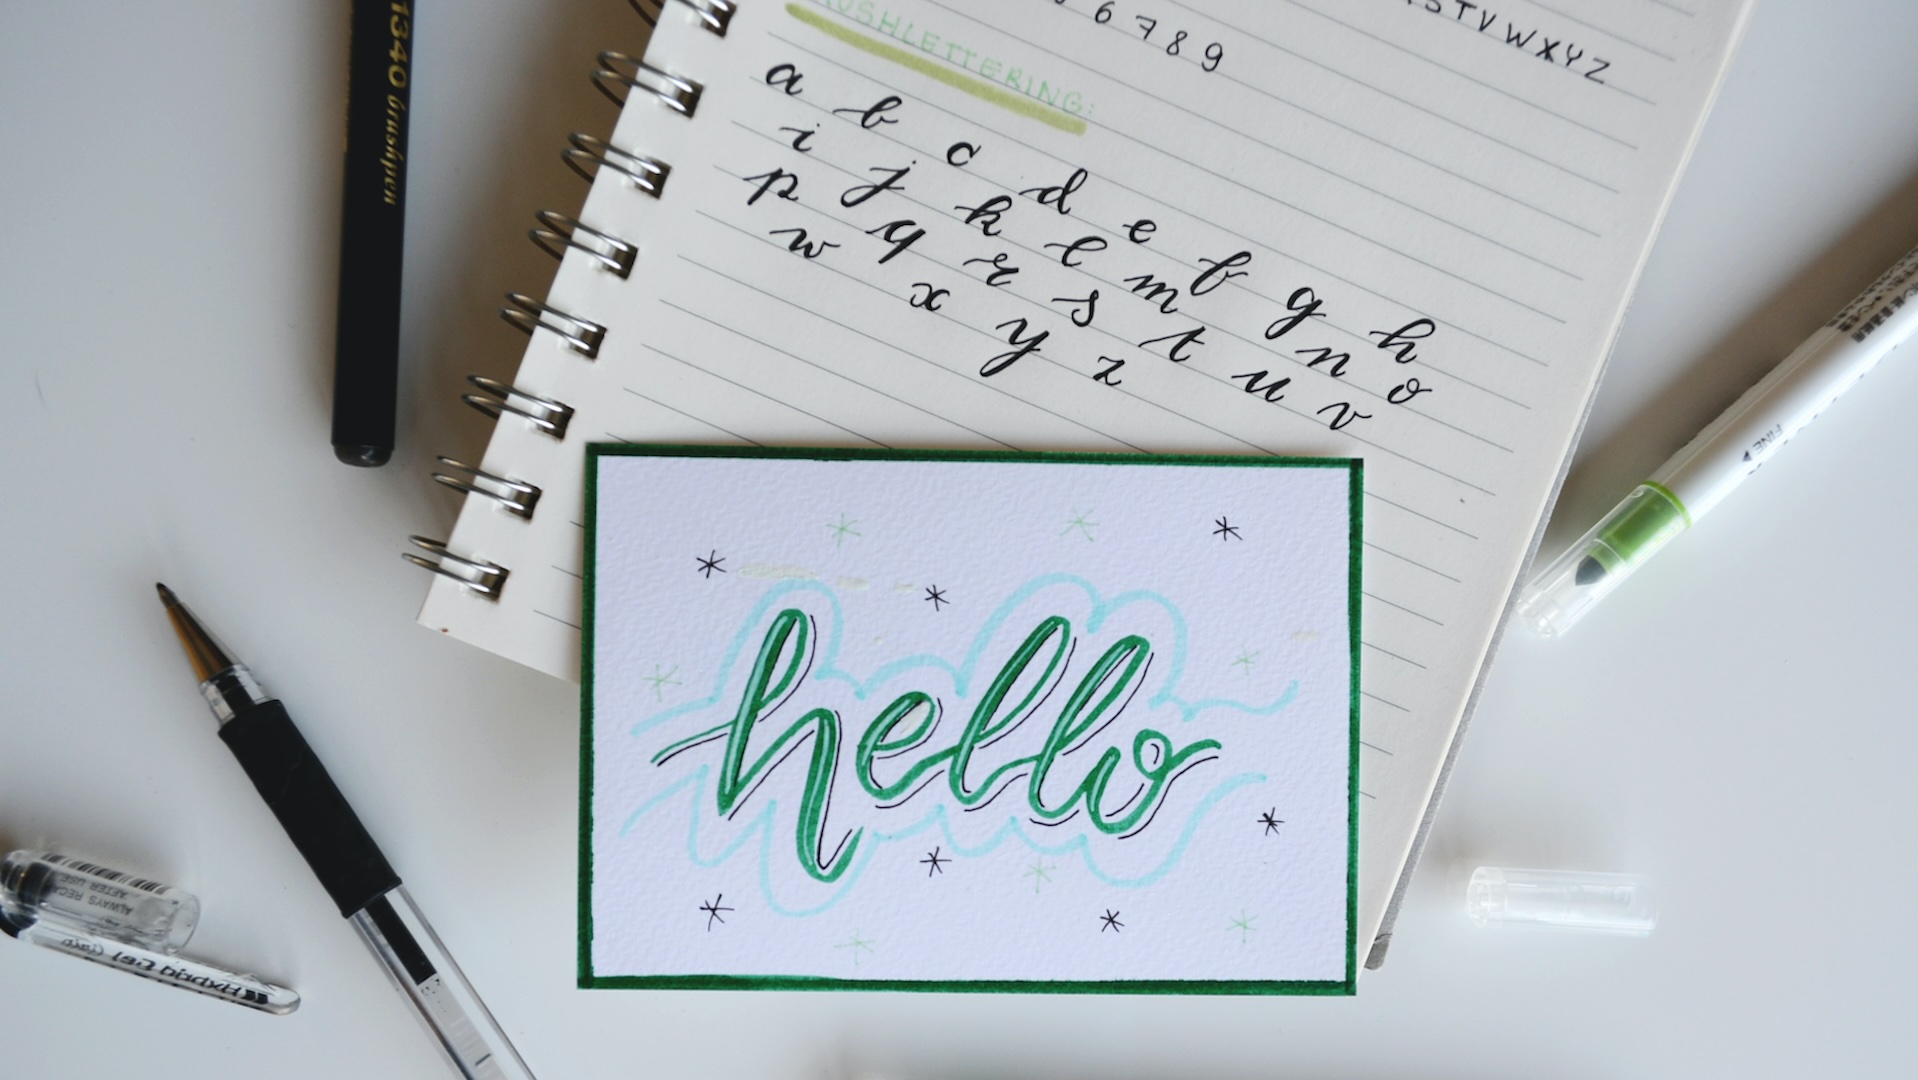 6 7 8 9
S T V W X Y Z
BRUSHLETTERING:
a b c d e f g h
i j k l m n o
p q r s t u v
w x y z
hello
1340 brushpen
FINE
ALWAYS RECAP
AFTER USE
Hybrid Gel Grip